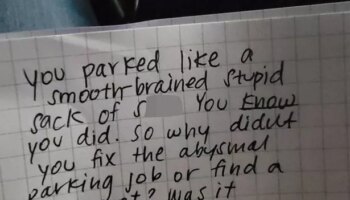 you parked like a
smooth-brained stupid
sack of s You know
you did. So why didn't
you fix the abysmal
parking job or find a
was it